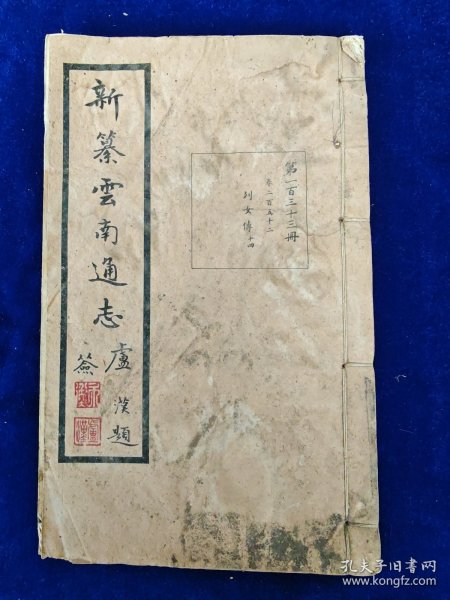 新纂雲南通志
盧漢題
簽
第一百三十三冊
卷二百五十二
列女傳十四
孔夫子旧书网
www.kongfz.com